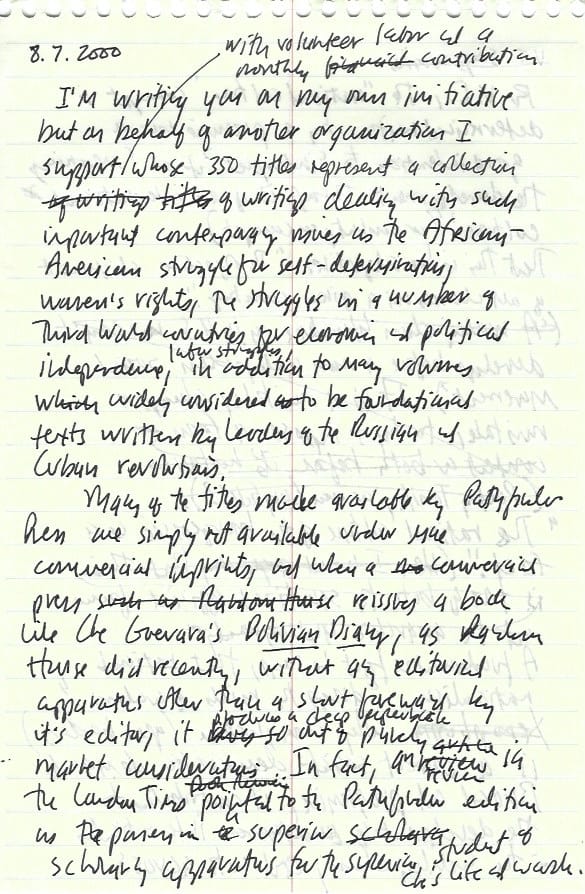 8.7.2000
with volunteer labor and a
monthly financial contribution
I'm writing you on my own initiative
but on behalf of another organization I
support whose 350 titles represent a collection
of writings titles of writings dealing with such
important contemporary issues as the African-
American struggle for self-determination,
women's rights, the struggles in a number of
Third World countries for economic and political
labor struggles,
independence, in addition to many volumes
which widely considered as to be foundational
texts written by leaders of the Russian and
Cuban revolutions.
Many of the titles made available by Pathfinder
Press are simply not available under
commercial imprints, and when a commercial
press such as Random House reissues a book
like Che Guevara's Bolivian Diary, as Random
House did recently, without any editorial
apparatus other than a short foreword by
produce a cheap paperback
it's editor, it does so out of purely
market considerations. In fact, an article in
review
the London Times pointed to the Pathfinder edition
as the superior
student of
scholarly apparatus for the
Che's life and work.